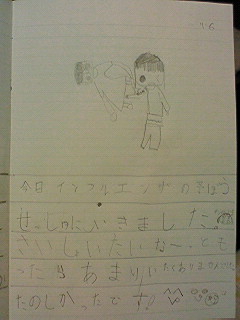 今日インフルエンザのよぼう
せっしゅにいきました。
さいしょいたいかな〜とも
ったらあまりいたくありませんでした
たのしかったです!